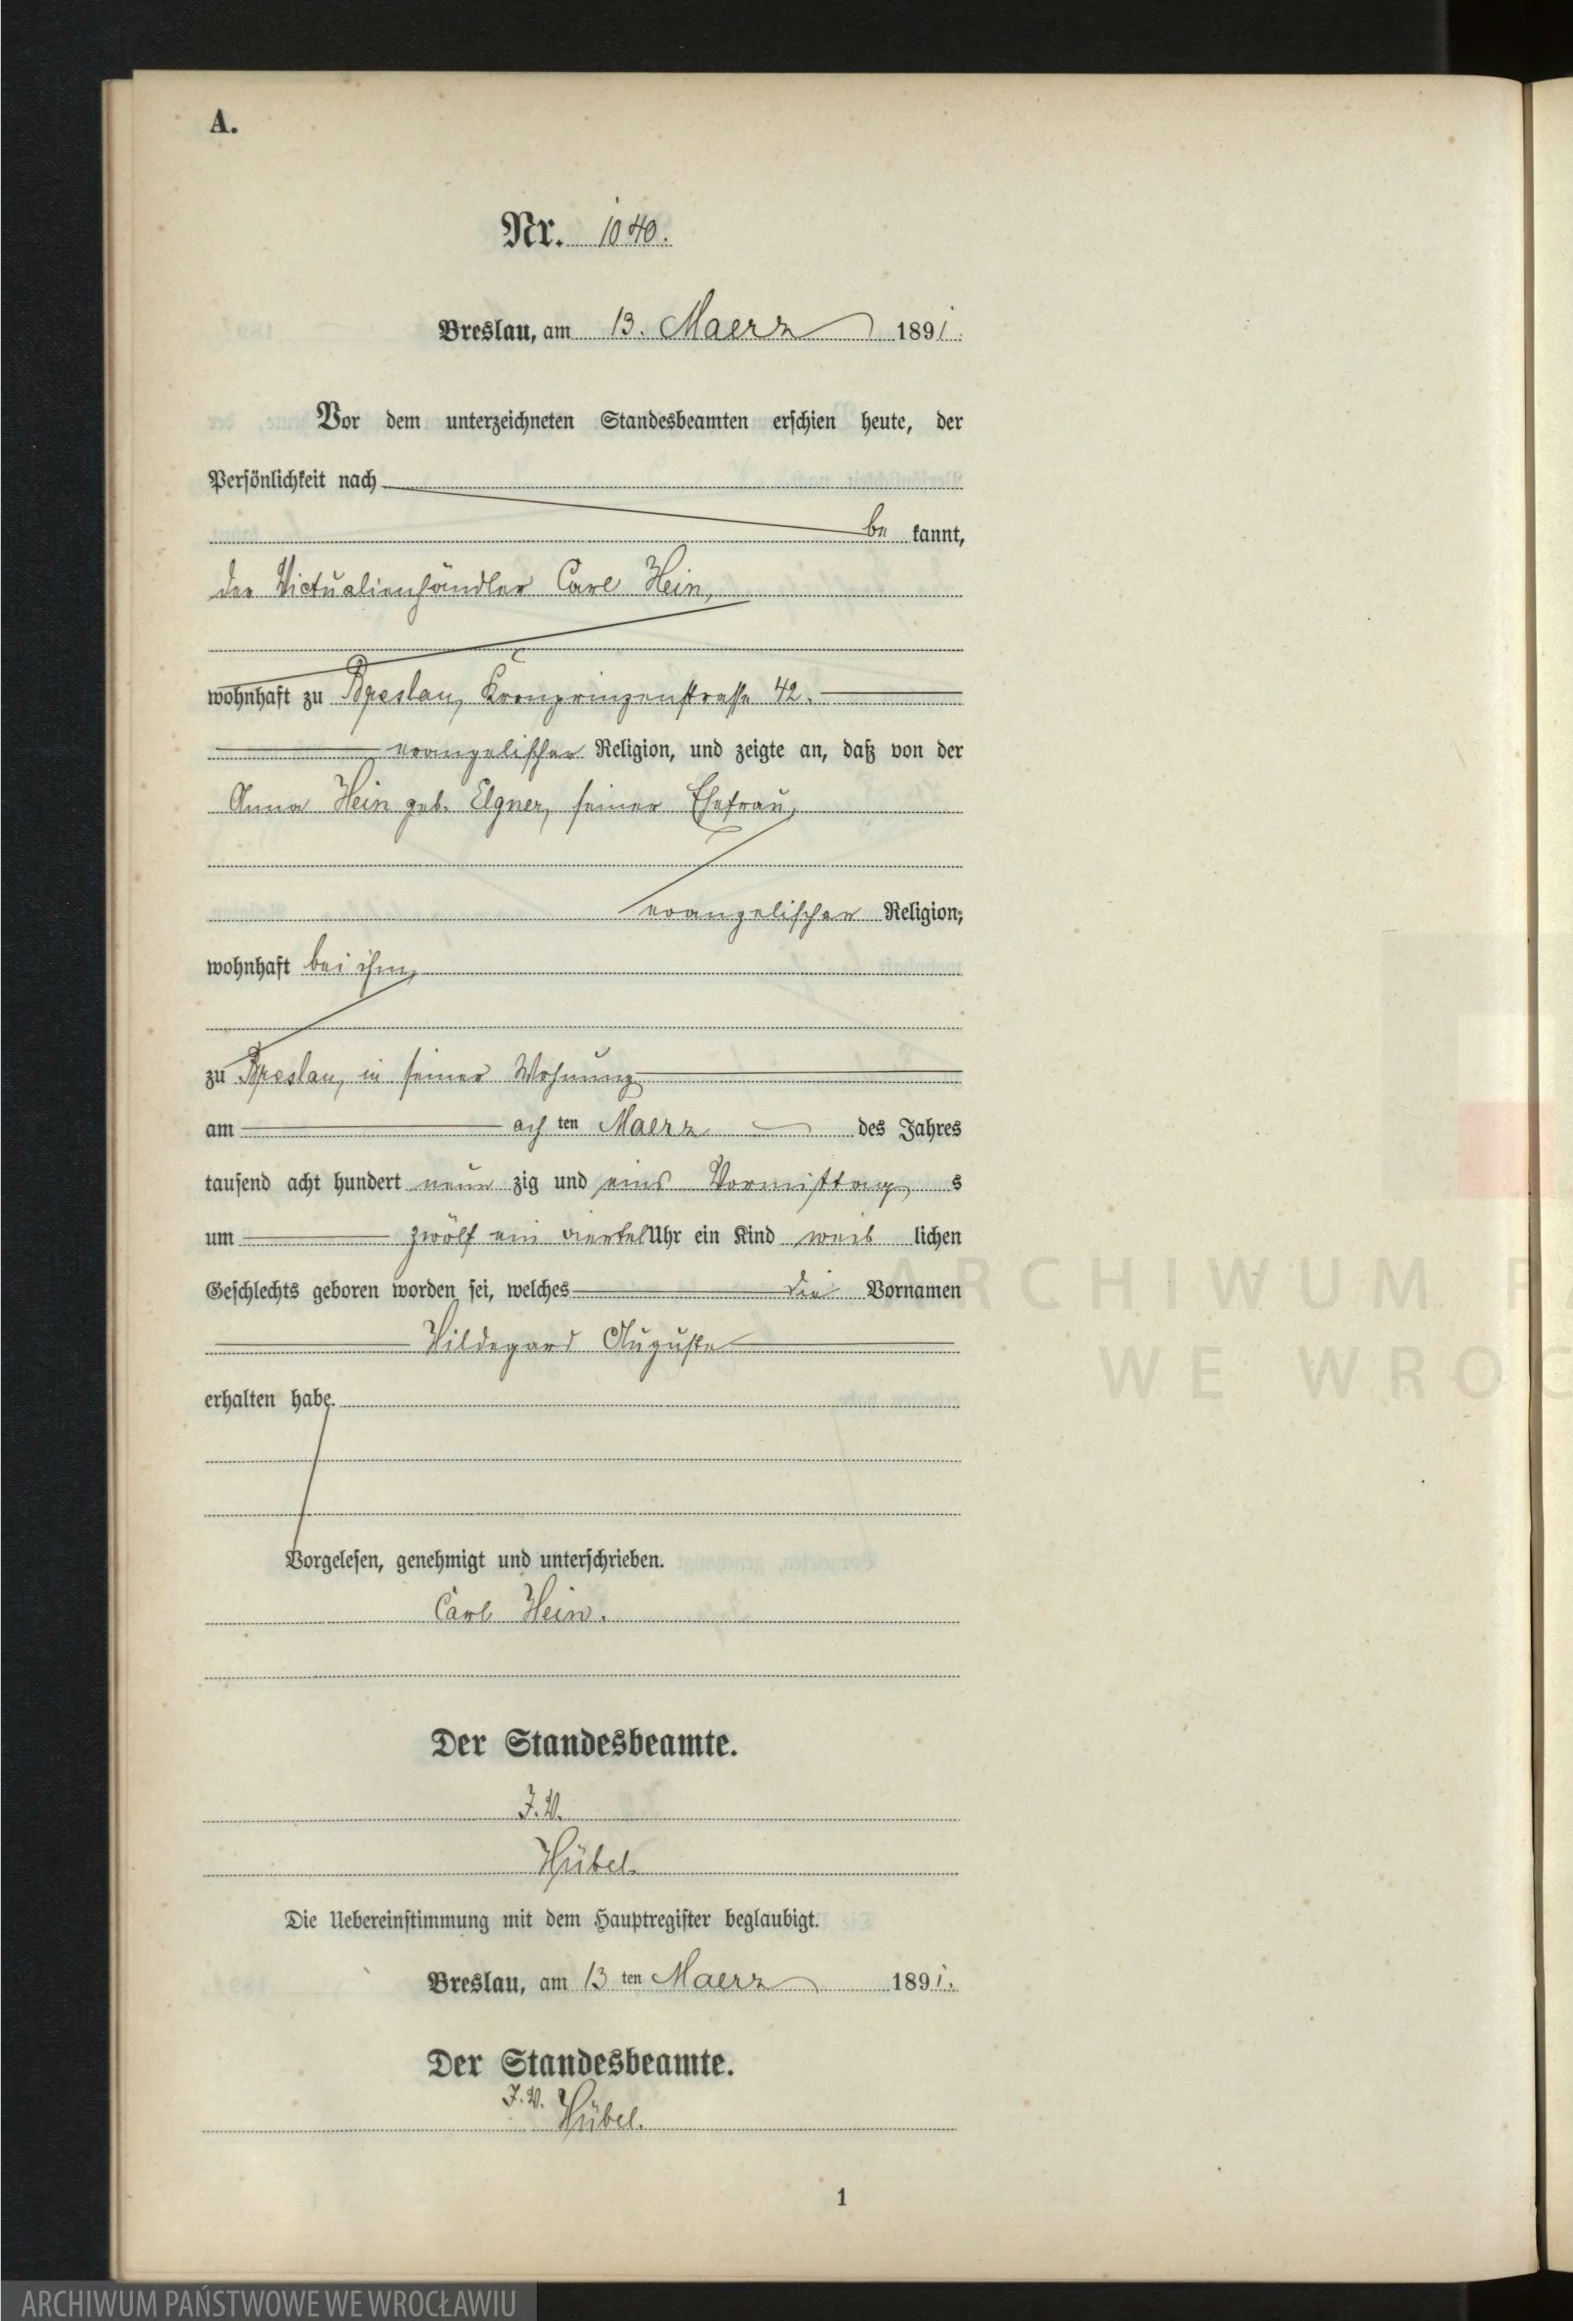 A.
Nr. 1040.
Breslau, am 13. Maerz 1891.
Vor dem unterzeichneten Standesbeamten erschien heute, der
Persönlichkeit nach
be kannt,
der Victualienhändler Carl Hein,
wohnhaft zu Breslau, Kronprinzenstrasse 42.
evangelischer Religion, und zeigte an, daß von der
Anna Hein geb. Elgner, seiner Ehefrau,
evangelischer Religion,
wohnhaft bei ihm,
zu Breslau, in seiner Wohnung
am ach ten Maerz des Jahres
tausend acht hundert neun zig und eins Vormittag s
um zwölf ein viertel Uhr ein Kind weib lichen
Geschlechts geboren worden sei, welches die Vornamen
Hildegard Auguste
erhalten habe.
Vorgelesen, genehmigt und unterschrieben.
Carl Hein.
Der Standesbeamte.
J. V.
Hübel.
Die Uebereinstimmung mit dem Hauptregister beglaubigt.
Breslau, am 13 ten Maerz 1891.
Der Standesbeamte.
J. V. Hübel.
1
ARCHIWUM PA
WE WROC
ARCHIWUM PAŃSTWOWE WE WROCŁAWIU